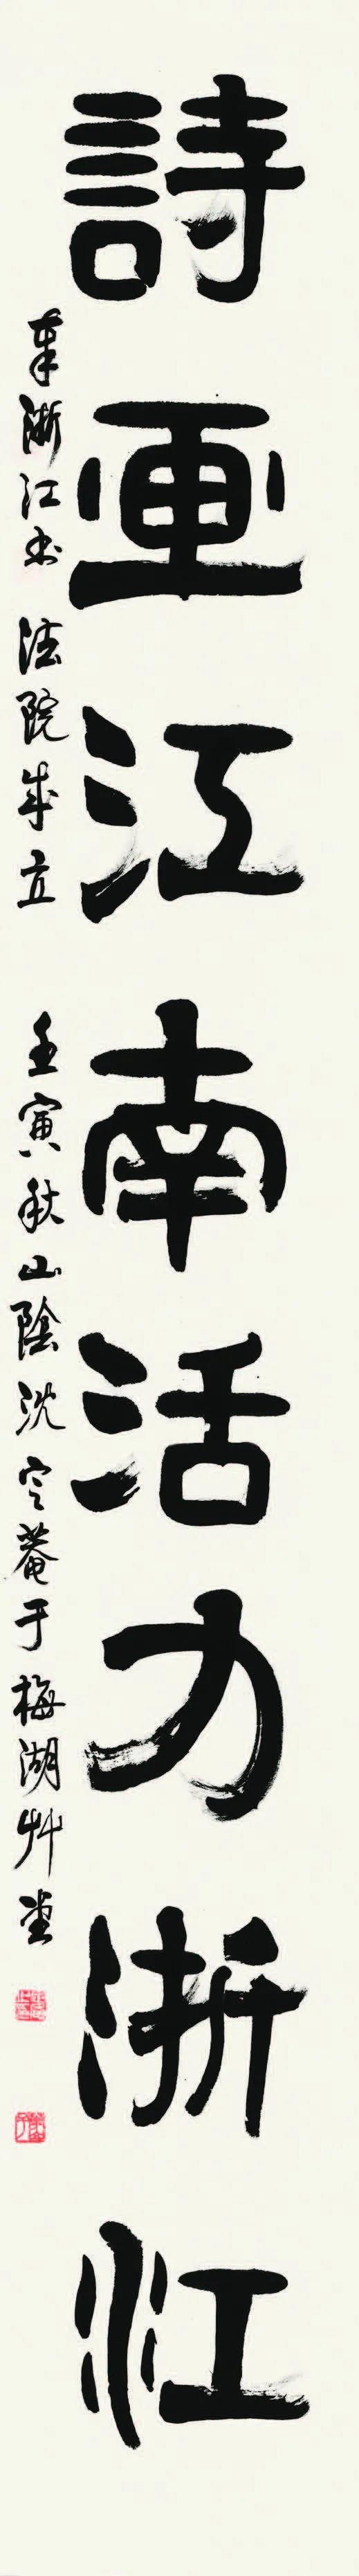 詩画江南活力浙江
奉浙江书法院成立壬寅秋山陰沈定菴于梅湖艸堂